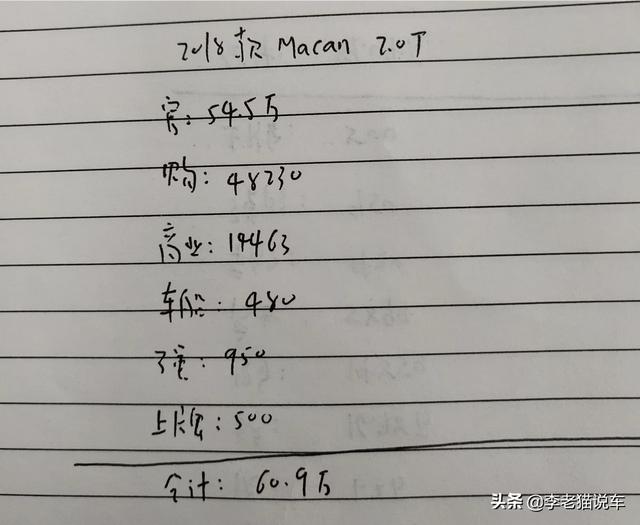 2018款 Macan 2.0T
官: 54.5万
购: 48230
商业: 14463
车船: 480
交强: 950
上牌: 500
合计: 60.9万
头条 @李老猫说车